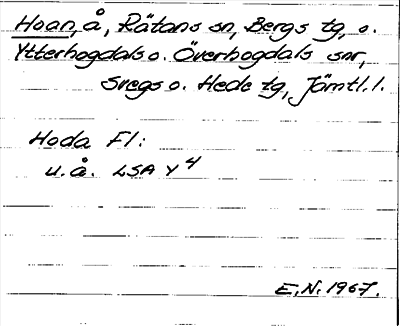 Hoan, å, Rätans sn, Bergs tg, o.
Ytterhogdals o. Överhogdals snr,
Svegs o. Hede tg, Jämtl. l.
Hoda Fl:
u.å. LSA Y4
E.N. 1967.